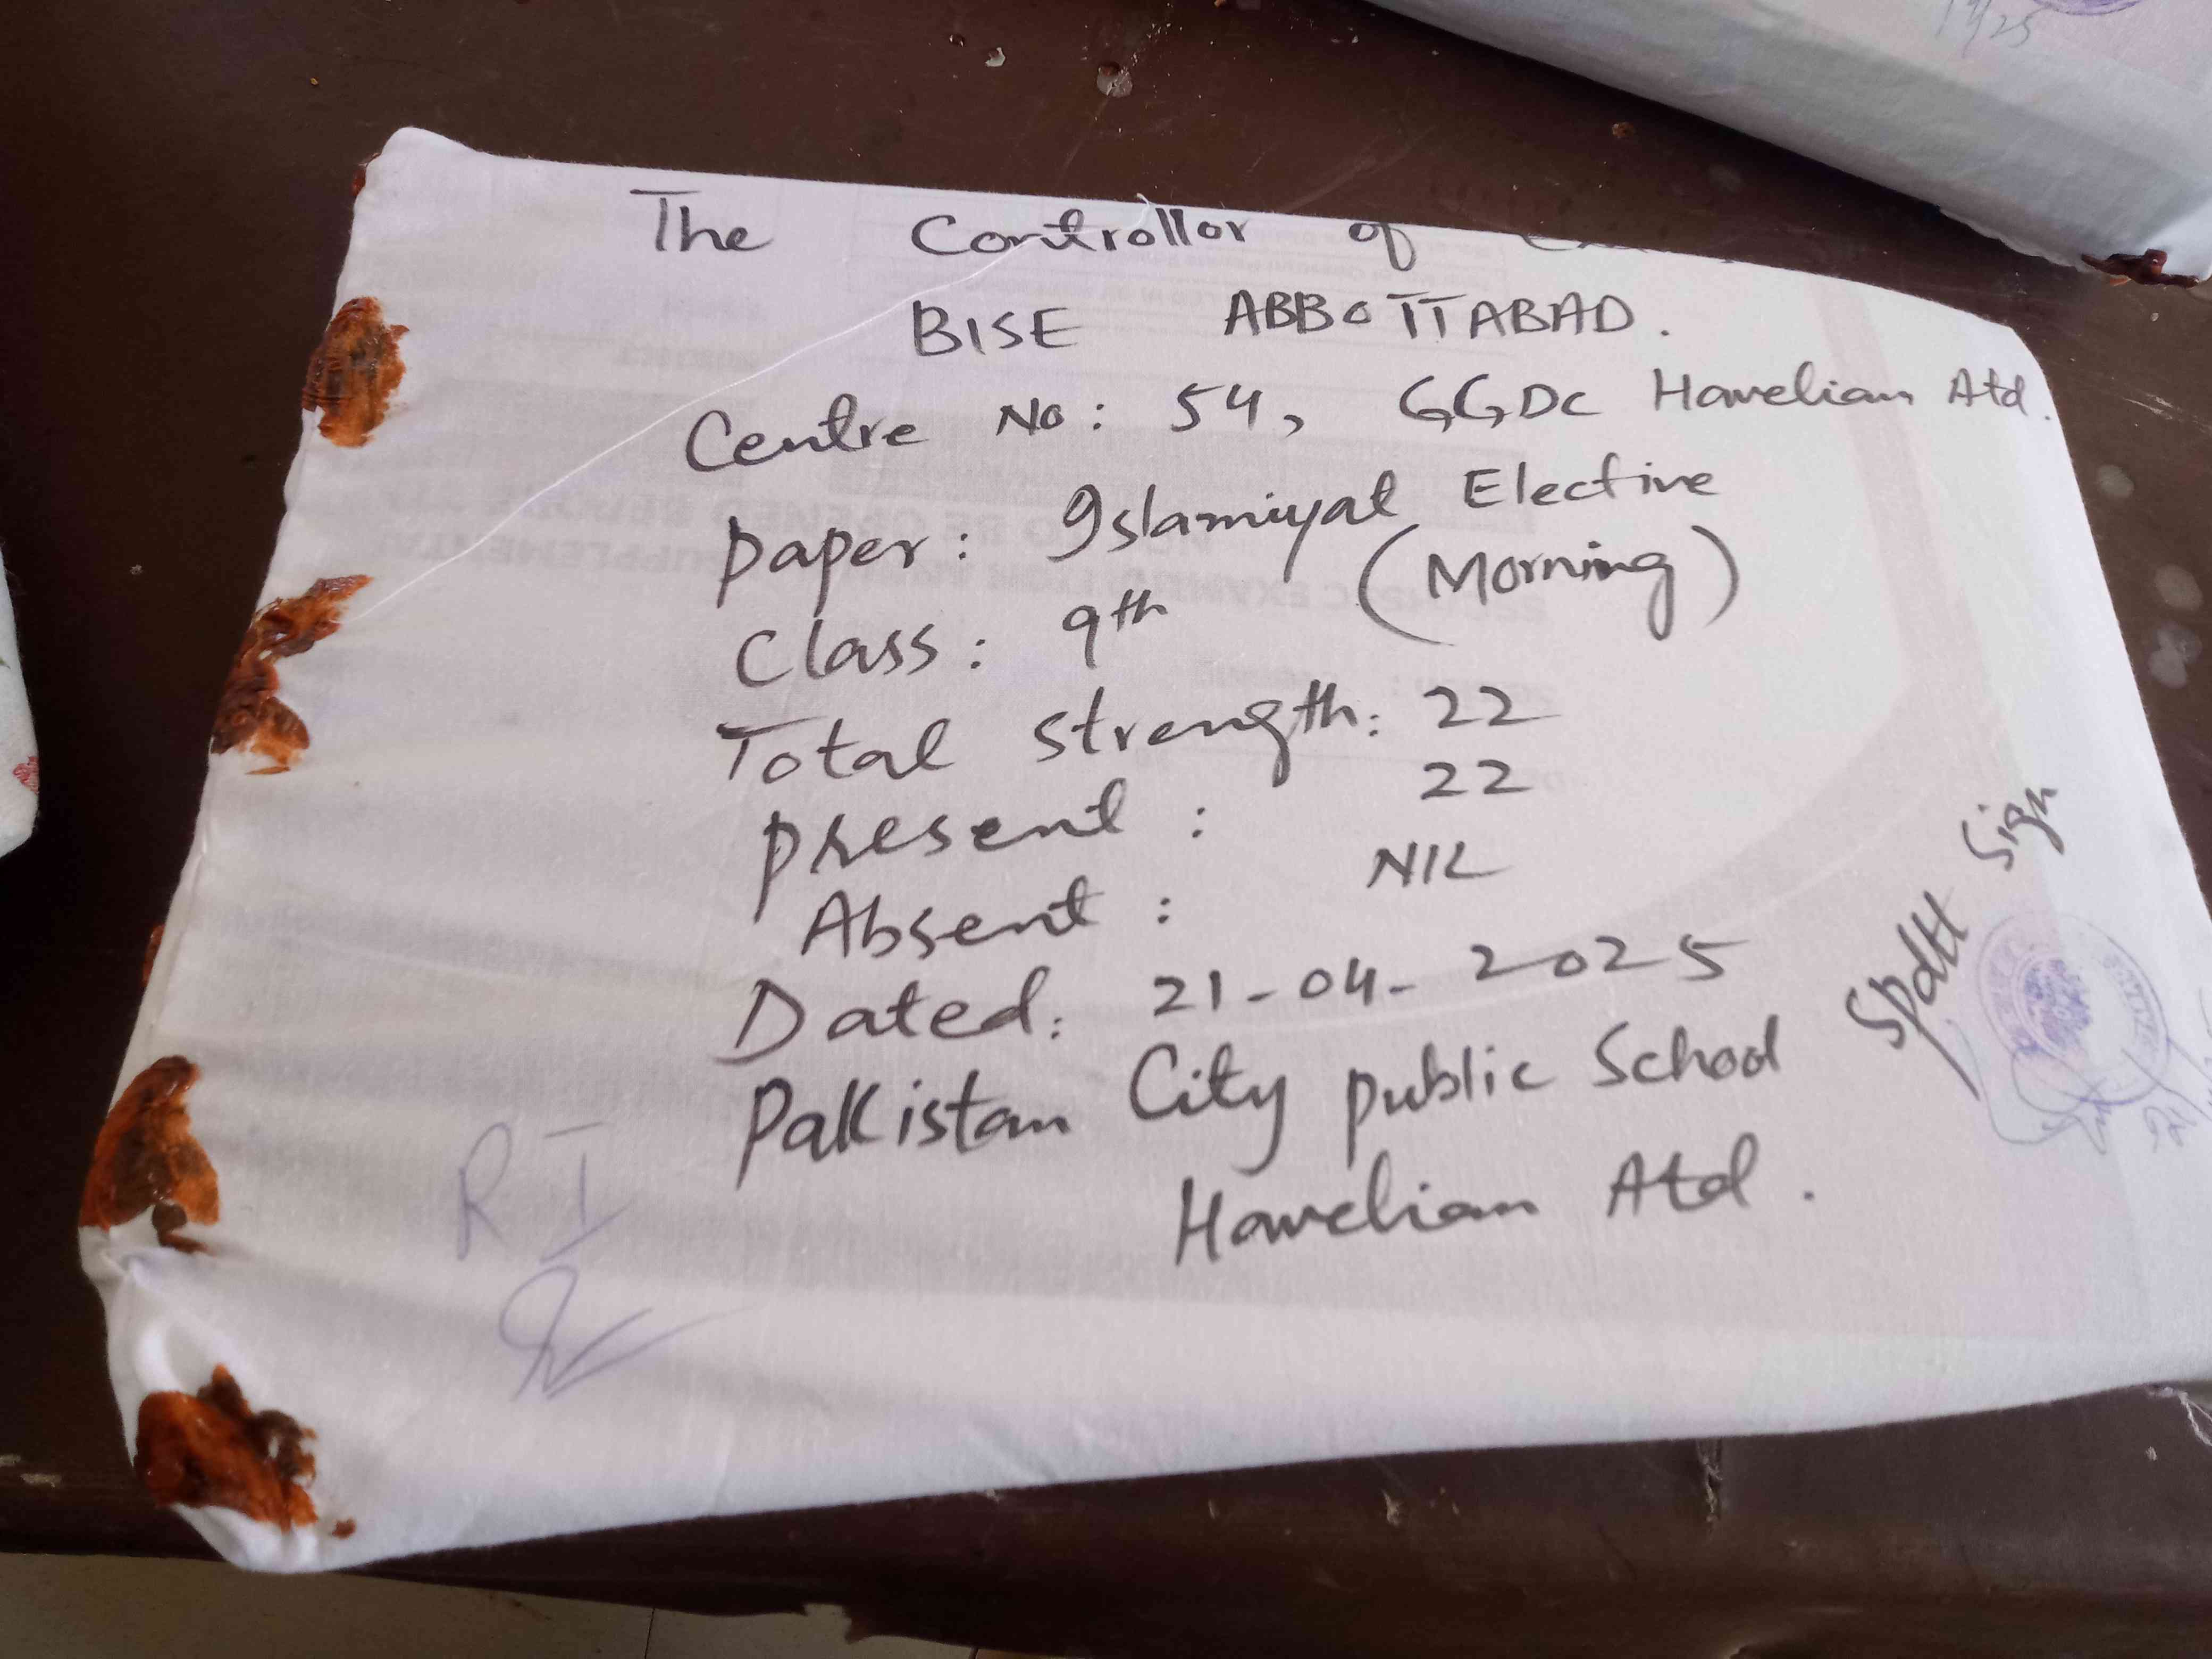 The Controllor of
BISE ABBOTTABAD.
Centre No: 54, GGDC Havelian Atd.
Paper: Islamiyat Elective
(Morning)
Class: 9th
Total strength: 22
Present: 22
Absent: NIL
Dated: 21-04-2025
Pakistan City Public School
Havelian Atd.
Spdtt Sign
R I